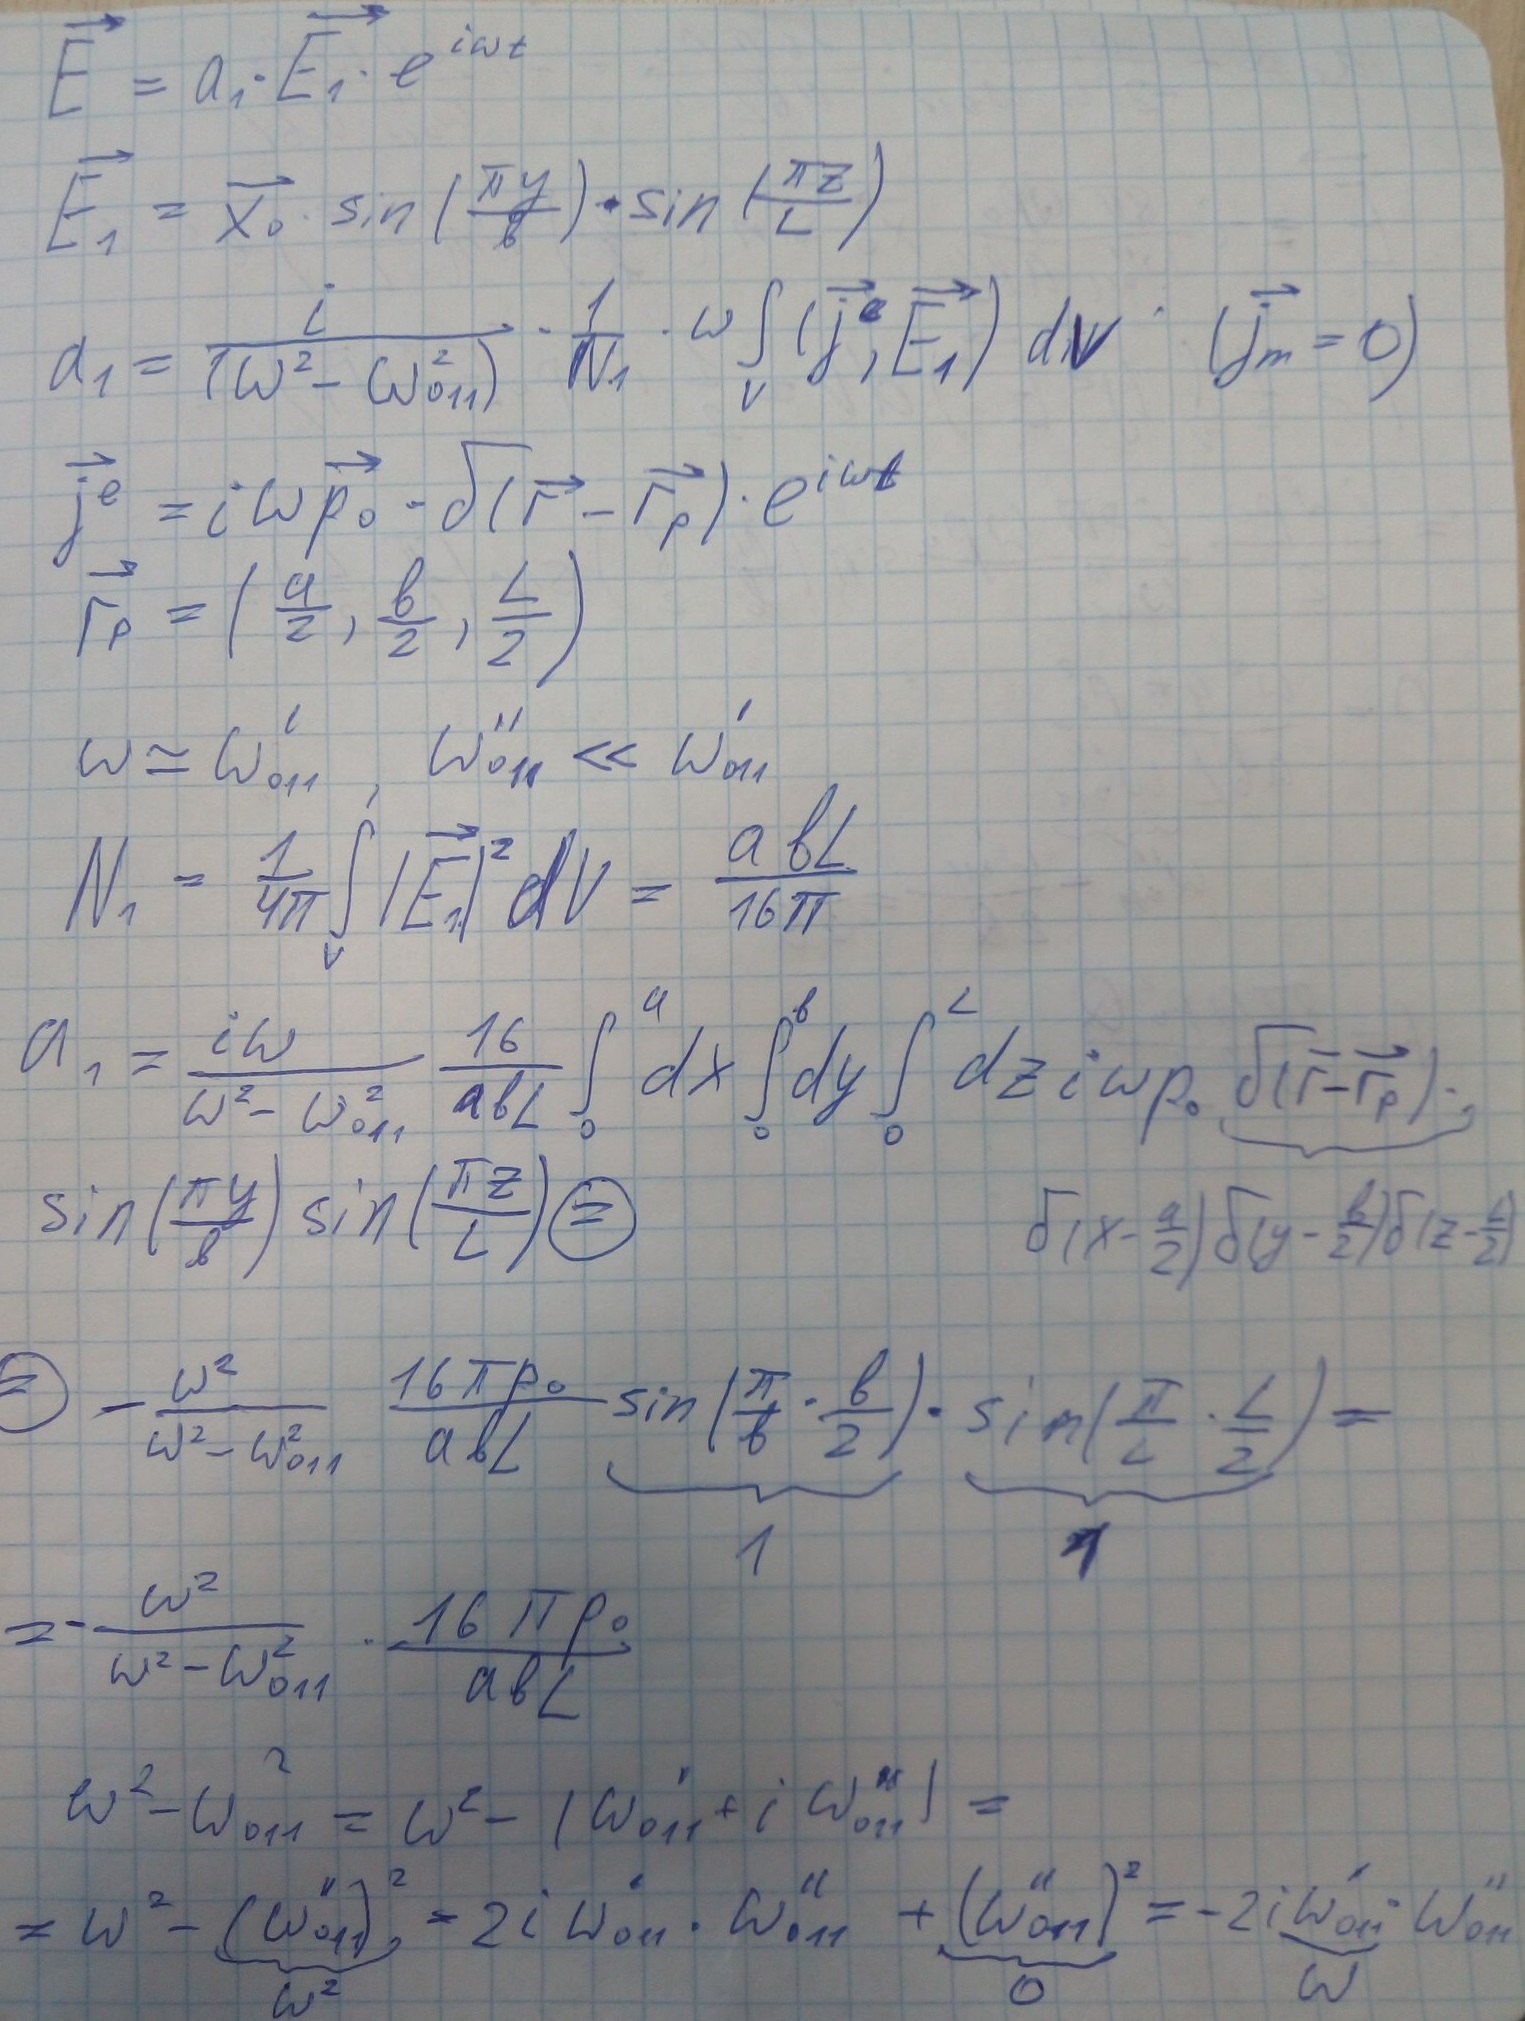 E⃗ = a₁·E⃗₁·e^{iωt}
E⃗₁ = x⃗₀· sin(πy/в)·sin(πz/L)
a₁ = i/(ω² - ω²₀₁₁) · 1/N₁ · ω ∫_V (j⃗ᵉ, E⃗₁) dV (j⃗ₘ = 0)
j⃗ᵉ = iωp⃗₀ · δ(r⃗ - r⃗ₚ)·e^{iωt}
r⃗ₚ = (a/2, в/2, L/2)
ω ≃ ω'₀₁₁, ω''₀₁₁ ≪ ω'₀₁₁
N₁ = 1/4π ∫_V |E⃗₁|² dV = aвL/16π
a₁ = iω/(ω² - ω²₀₁₁) 16/aвL ∫₀^a dx ∫₀^в dy ∫₀^L dz iωp₀ δ(r⃗ - r⃗ₚ)·
sin(πy/в) sin(πz/L) = δ(x - a/2) δ(y - в/2) δ(z - L/2)
= - ω²/(ω² - ω²₀₁₁) 16πp₀/aвL sin(π/в · в/2) · sin(π/L · L/2) =
1 1
= - ω²/(ω² - ω²₀₁₁) · 16πp₀/aвL
ω² - ω²₀₁₁ = ω² - (ω'₀₁₁ + iω''₀₁₁) =
= ω² - (ω''₀₁₁)² - 2iω'₀₁₁·ω''₀₁₁ + (ω''₀₁₁)² = -2iω'₀₁₁·ω''₀₁₁
ω² 0 ω